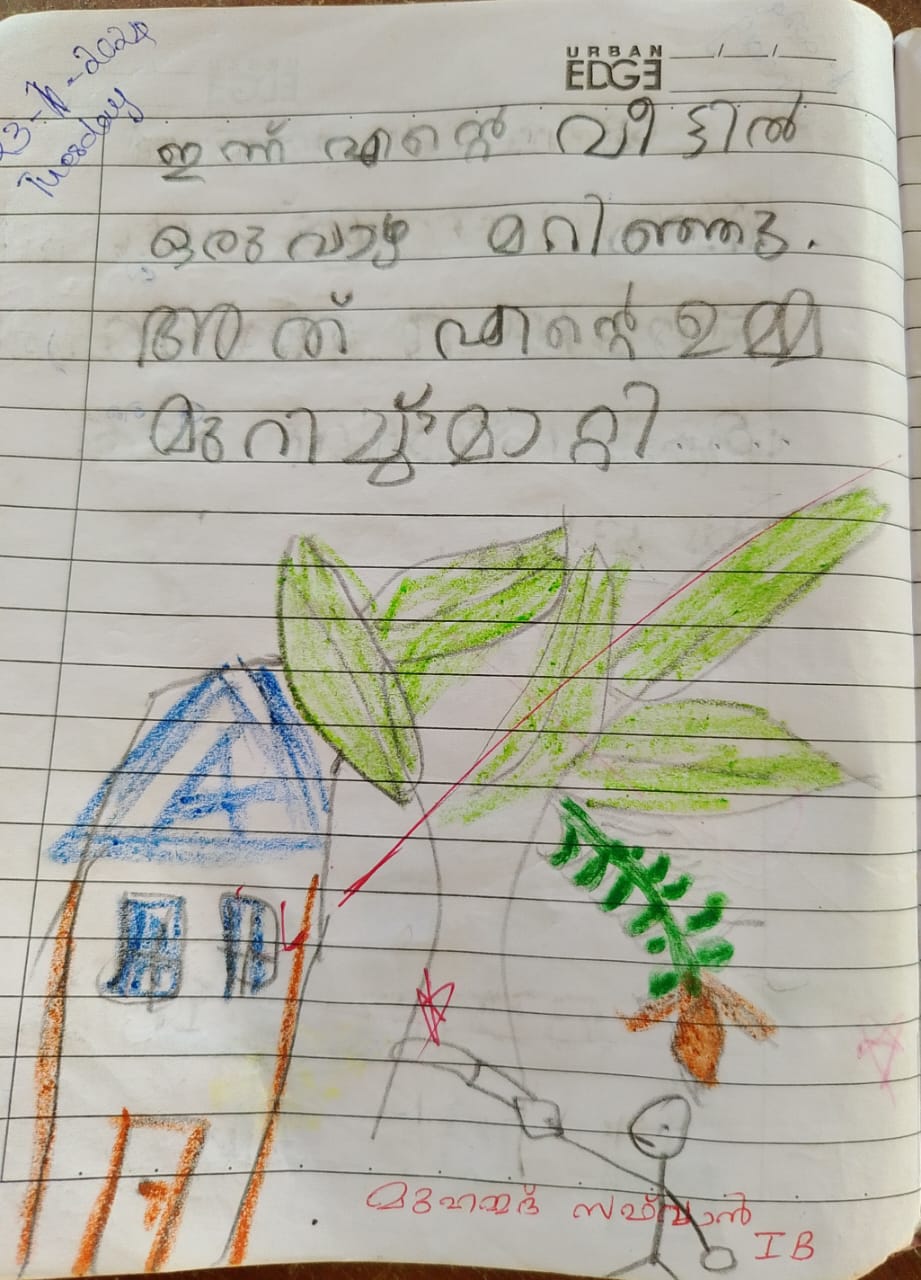 23-7-2024
Tuesday
URBAN
EDGE
ഇന്ന് എന്റെ വീട്ടിൽ
ഒരു വാഴ മറിഞ്ഞു.
അത് എന്റെ ഉമ്മ
മുറിച്ചുമാറ്റി.....
മുഹമ്മദ് സഫ്‌വാൻ
I B